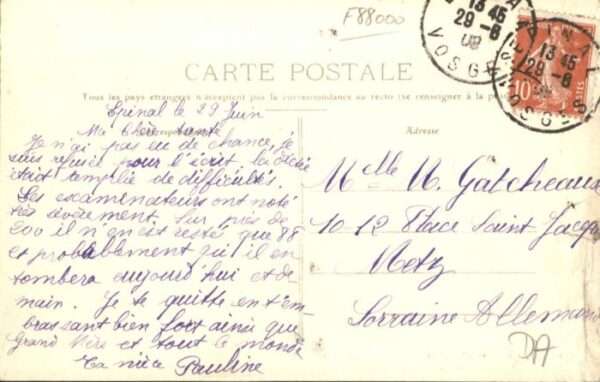 F88000
13 45
29-6
09
VOSGES
EPINAL
13 45
29-6
VOSGES
10
CARTE POSTALE
Tous les pays étrangers n'acceptent pas la correspondance au recto (se renseigner à la poste)
Correspondance
Adresse
Epinal le 29 Juin
Ma Chère tante
Je n'ai pas eu de chance, je
suis refusée pour l'écrit la dictée
était remplie de difficultés.
Les examinateurs ont noté
très sévèrement. Sur près de
200 il n'en est resté que 88
et probablement qu'il en
tombera aujourd'hui et de-
main. Je te quitte en t'em-
brassant bien fort ainsi que
Grand Mère et tout le monde
Ta nièce Pauline
Melle N. Gatcheaux
10-12 Place Saint Jacq
Metz
Lorraine Allemand
DA